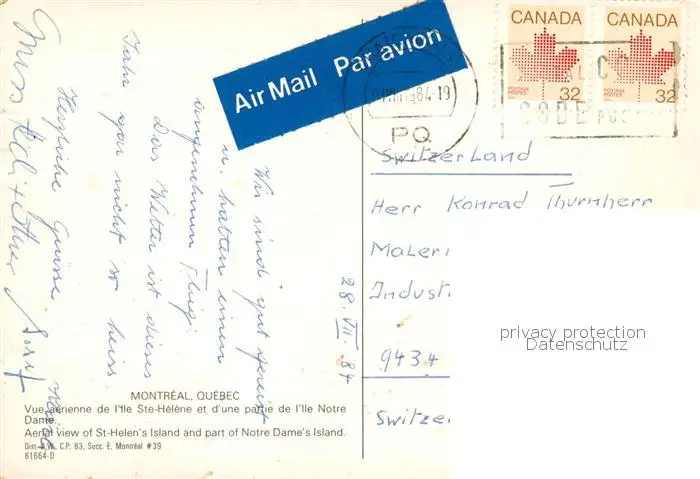 Air Mail Par avion
CANADA
CANADA
POSTAGE
POSTES
32
POSTAGE
POSTES
32
84-19
PQ
CODE
Wir sind gut gereist
u. hatten einen
angenehmen Flug.
Das Wetter ist dieses
Jahr gar nicht so heiss.
Herzliche Grüsse
Miss
28. VII. 84
Switzerland
Herr Konrad Thurnherr
Maler
Indust
9434
Switzer
privacy protection
Datenschutz
MONTRÉAL, QUÉBEC
Vue aérienne de l'Ile Ste-Hélène et d'une partie de l'Ile Notre
Dame.
Aerial view of St-Helen's Island and part of Notre Dame's Island.
Dist. A.W., C.P. 83, Succ. E, Montréal #39
61664-D